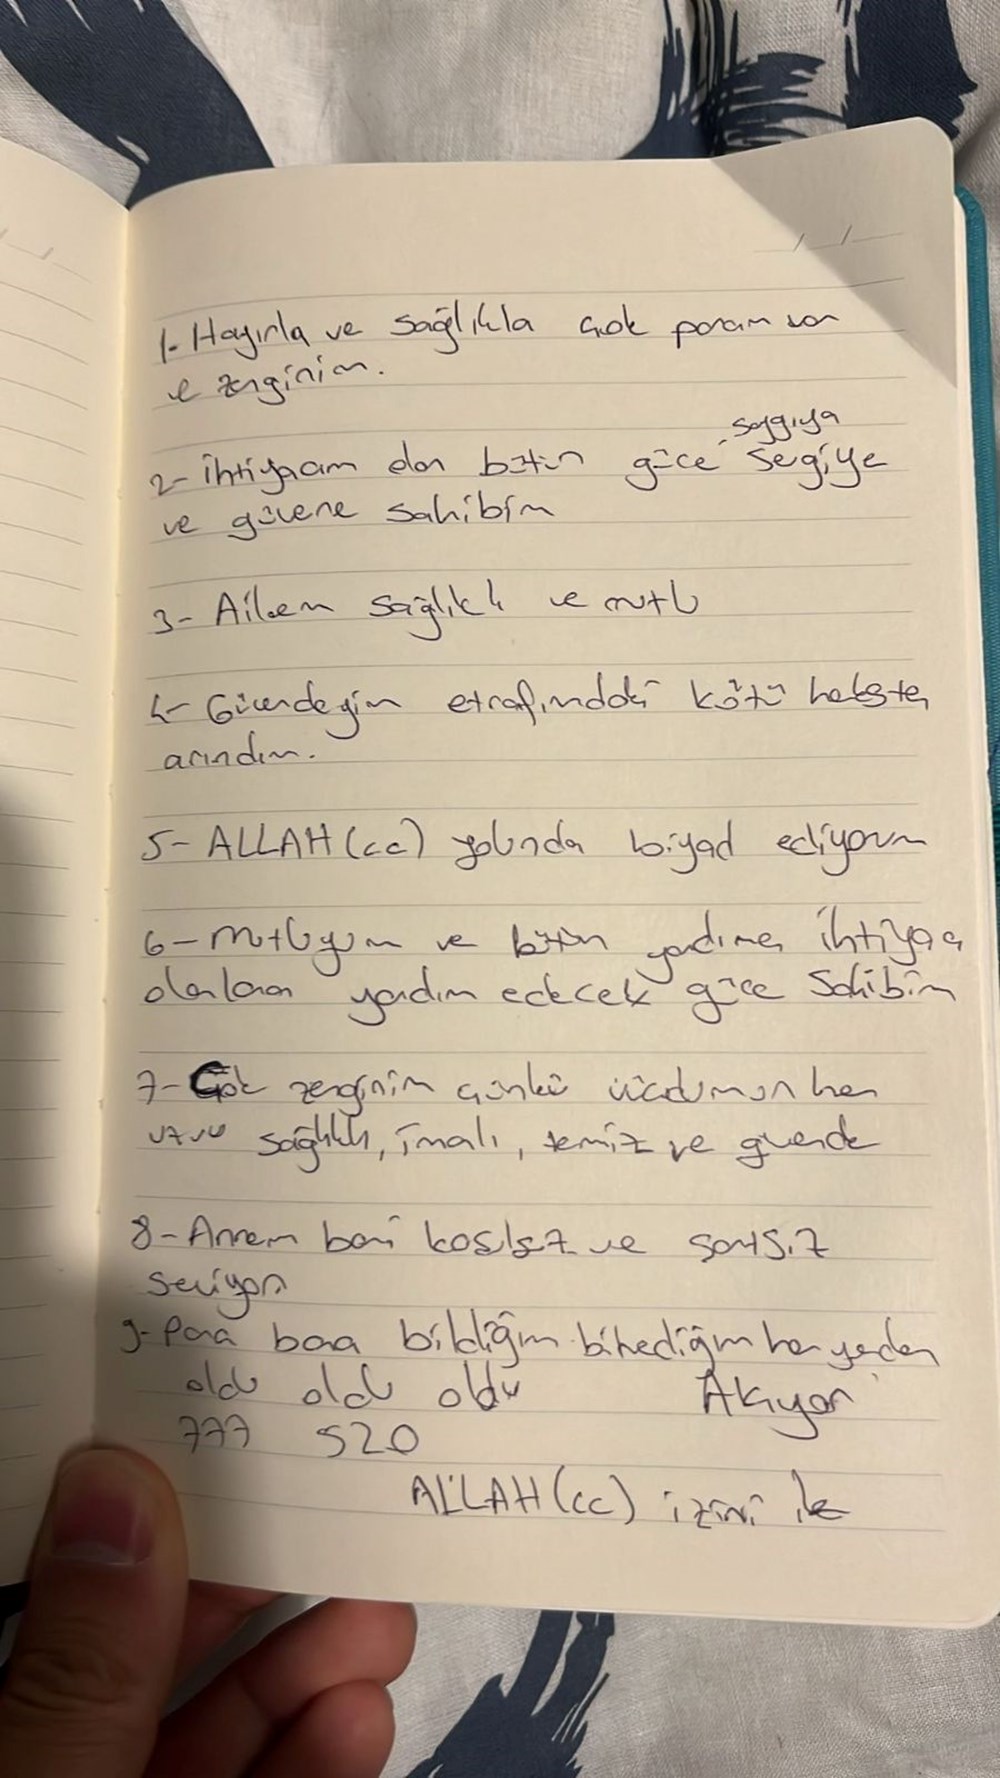 1- Hayırla ve sağlıkla çok param var
ve zenginim.
saygıya
2- ihtiyacım olan bütün güce segiye
ve güvene sahibim
3- Ailem sağlıklı ve mutlu
4- Güvendeyim etrafımdaki kötü
arındım.
5- ALLAH (cc) yolunda biyad ediyorum
6- mutluyum ve bütün yardıma ihtiyacı
olanlara yardım edecek güce Sahibim
7- Çok zenginim çünkü vücudumun her
uzvu sağlıklı, imalı, temiz ve güvende
8- Annem beni koşulsuz ve şartsız
seviyor
9- Para bana bildiğim bilmediğim her yerden
oldu oldu oldu Akıyor
777 520
ALLAH (cc) izini ile